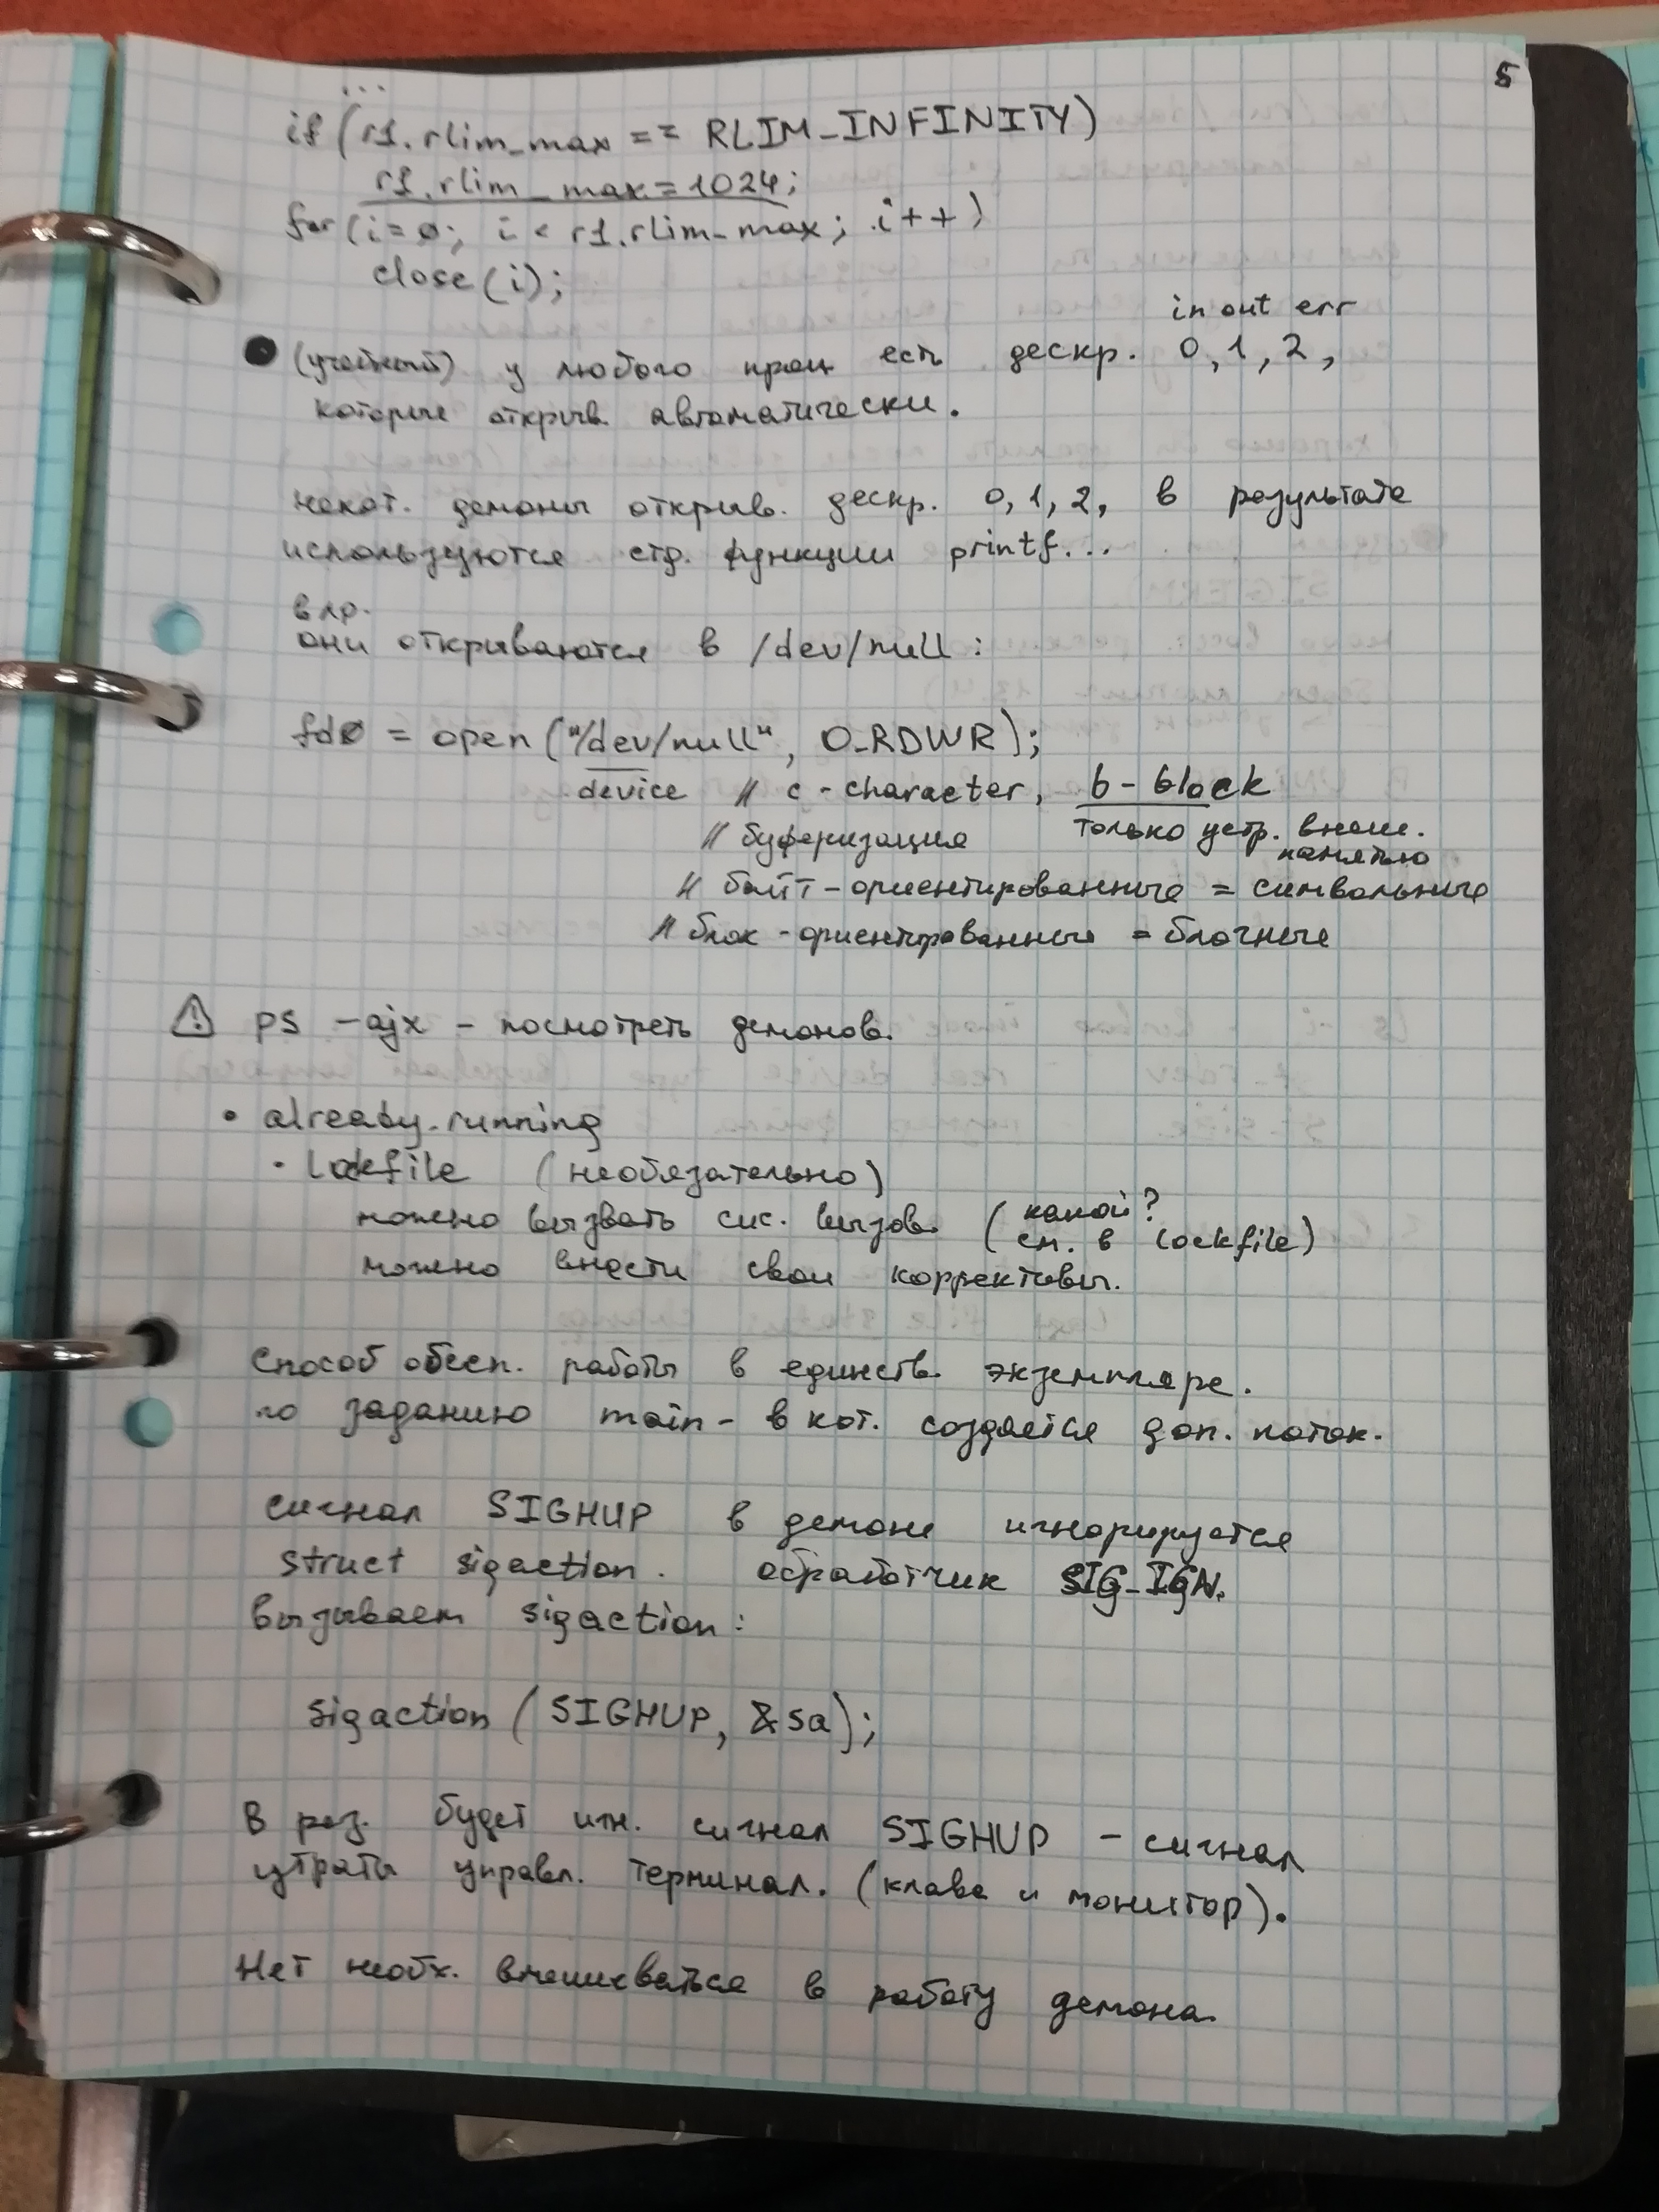 5
...
if (r1.rlim_max == RLIM_INFINITY)
r1.rlim_max = 1024;
for (i=0; i < r1.rlim_max; i++)
close(i);
in out err
у любого проц есть дескр. 0, 1, 2,
которые открыв. автоматически.
некот. демоны открыв. дескр. 0, 1, 2, в результате
используются стд. функции printf...
в лр.
они открываются в /dev/null :
fd0 = open ("/dev/null", O_RDWR);
device // c - character, b - block
// буферизация только устр. внеш.
памятью
// байт - ориентированные = символьные
// блок - ориентированные = блочные
⚠ ps -ajx - посмотреть демонов.
• already_running
• lockfile (необязательно)
можно вызвать сис. вызов. (какой?
см. в lockfile)
можно внести свои коррективы.
Способ обесп. работы в единств. экземпляре.
по заданию main - в кот. создаётся доп. поток.
сигнал SIGHUP в демоне игнорируется
struct sigaction. обработчик SIG_IGN.
вызываем sigaction :
sigaction (SIGHUP, &sa);
В рез. будет игн. сигнал SIGHUP - сигнал
утраты управл. терминал. (клава и монитор).
Нет необх. вмешиваться в работу демона.